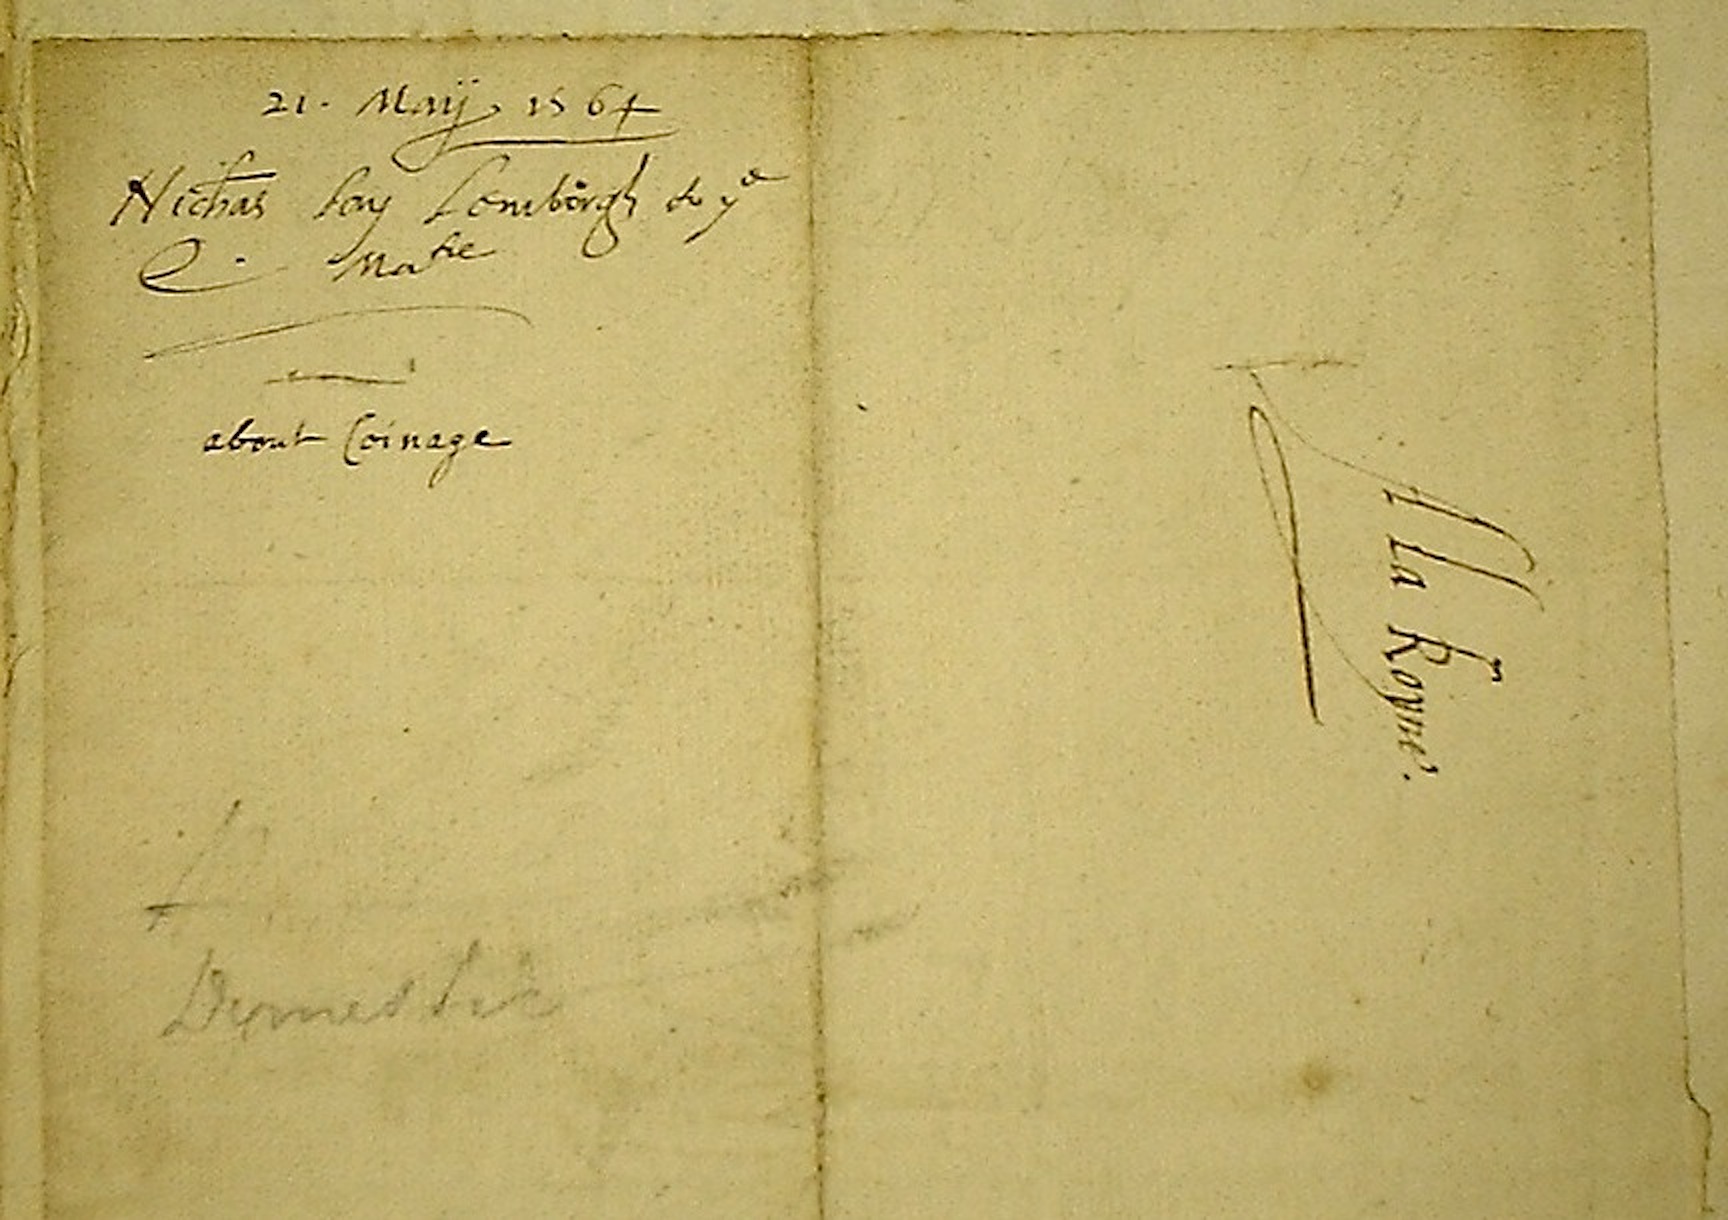 21. Maij 1564
Nichas Lay Lomborgh to ye
Q. Matie
about Coinage
A La Royne.
Domestic